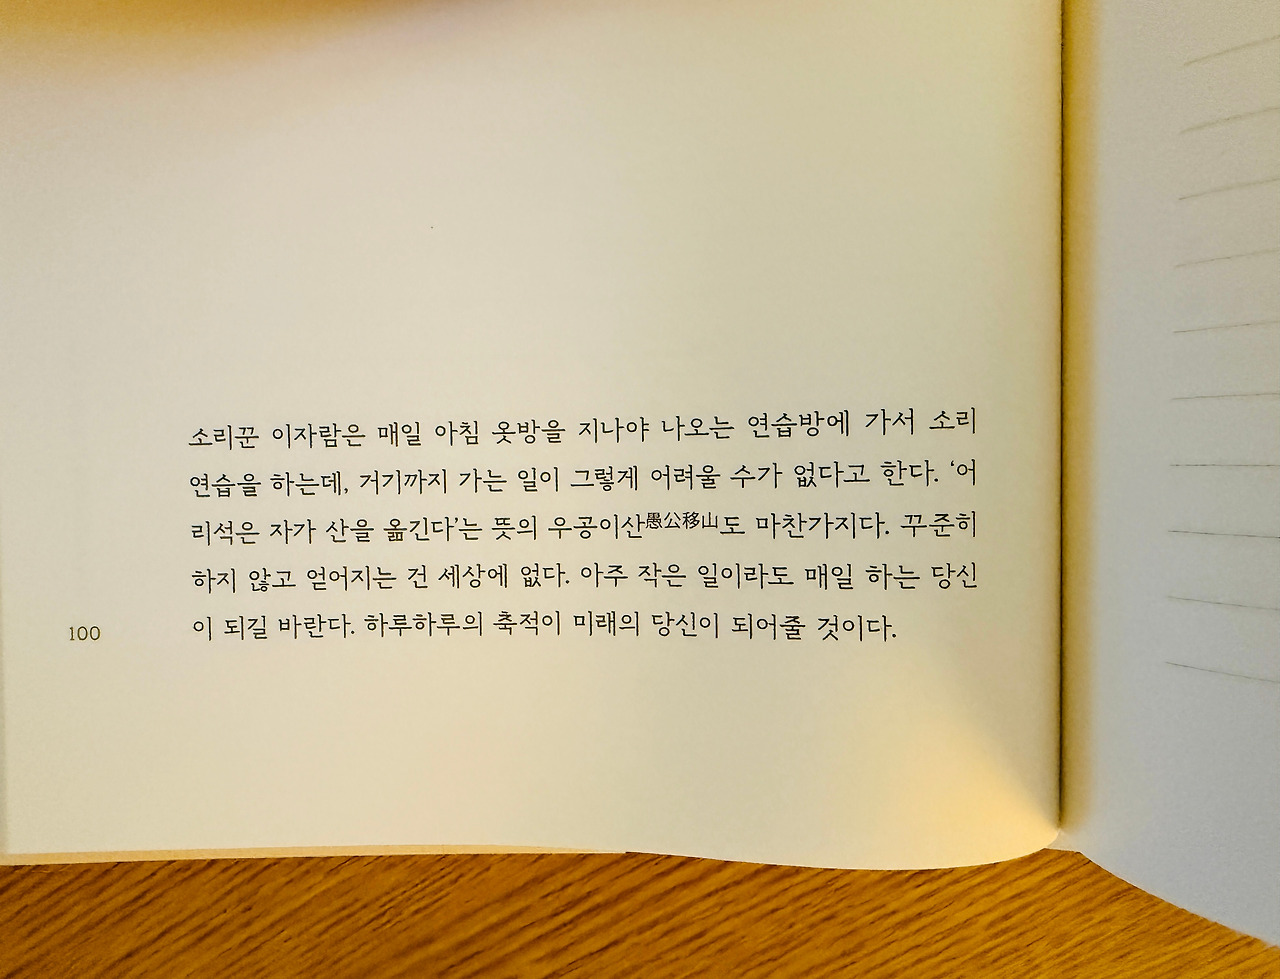 소리꾼 이자람은 매일 아침 옷방을 지나야 나오는 연습방에 가서 소리
연습을 하는데, 거기까지 가는 일이 그렇게 어려울 수가 없다고 한다. ‘어
리석은 자가 산을 옮긴다’는 뜻의 우공이산愚公移山도 마찬가지다. 꾸준히
하지 않고 얻어지는 건 세상에 없다. 아주 작은 일이라도 매일 하는 당신
이 되길 바란다. 하루하루의 축적이 미래의 당신이 되어줄 것이다.
100